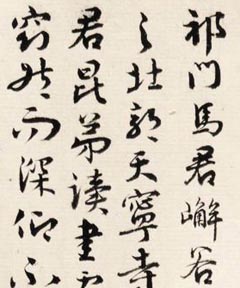 祁門馬君嶰谷
之北郭天寧寺
君昆弟讀書
窈然而深仰不